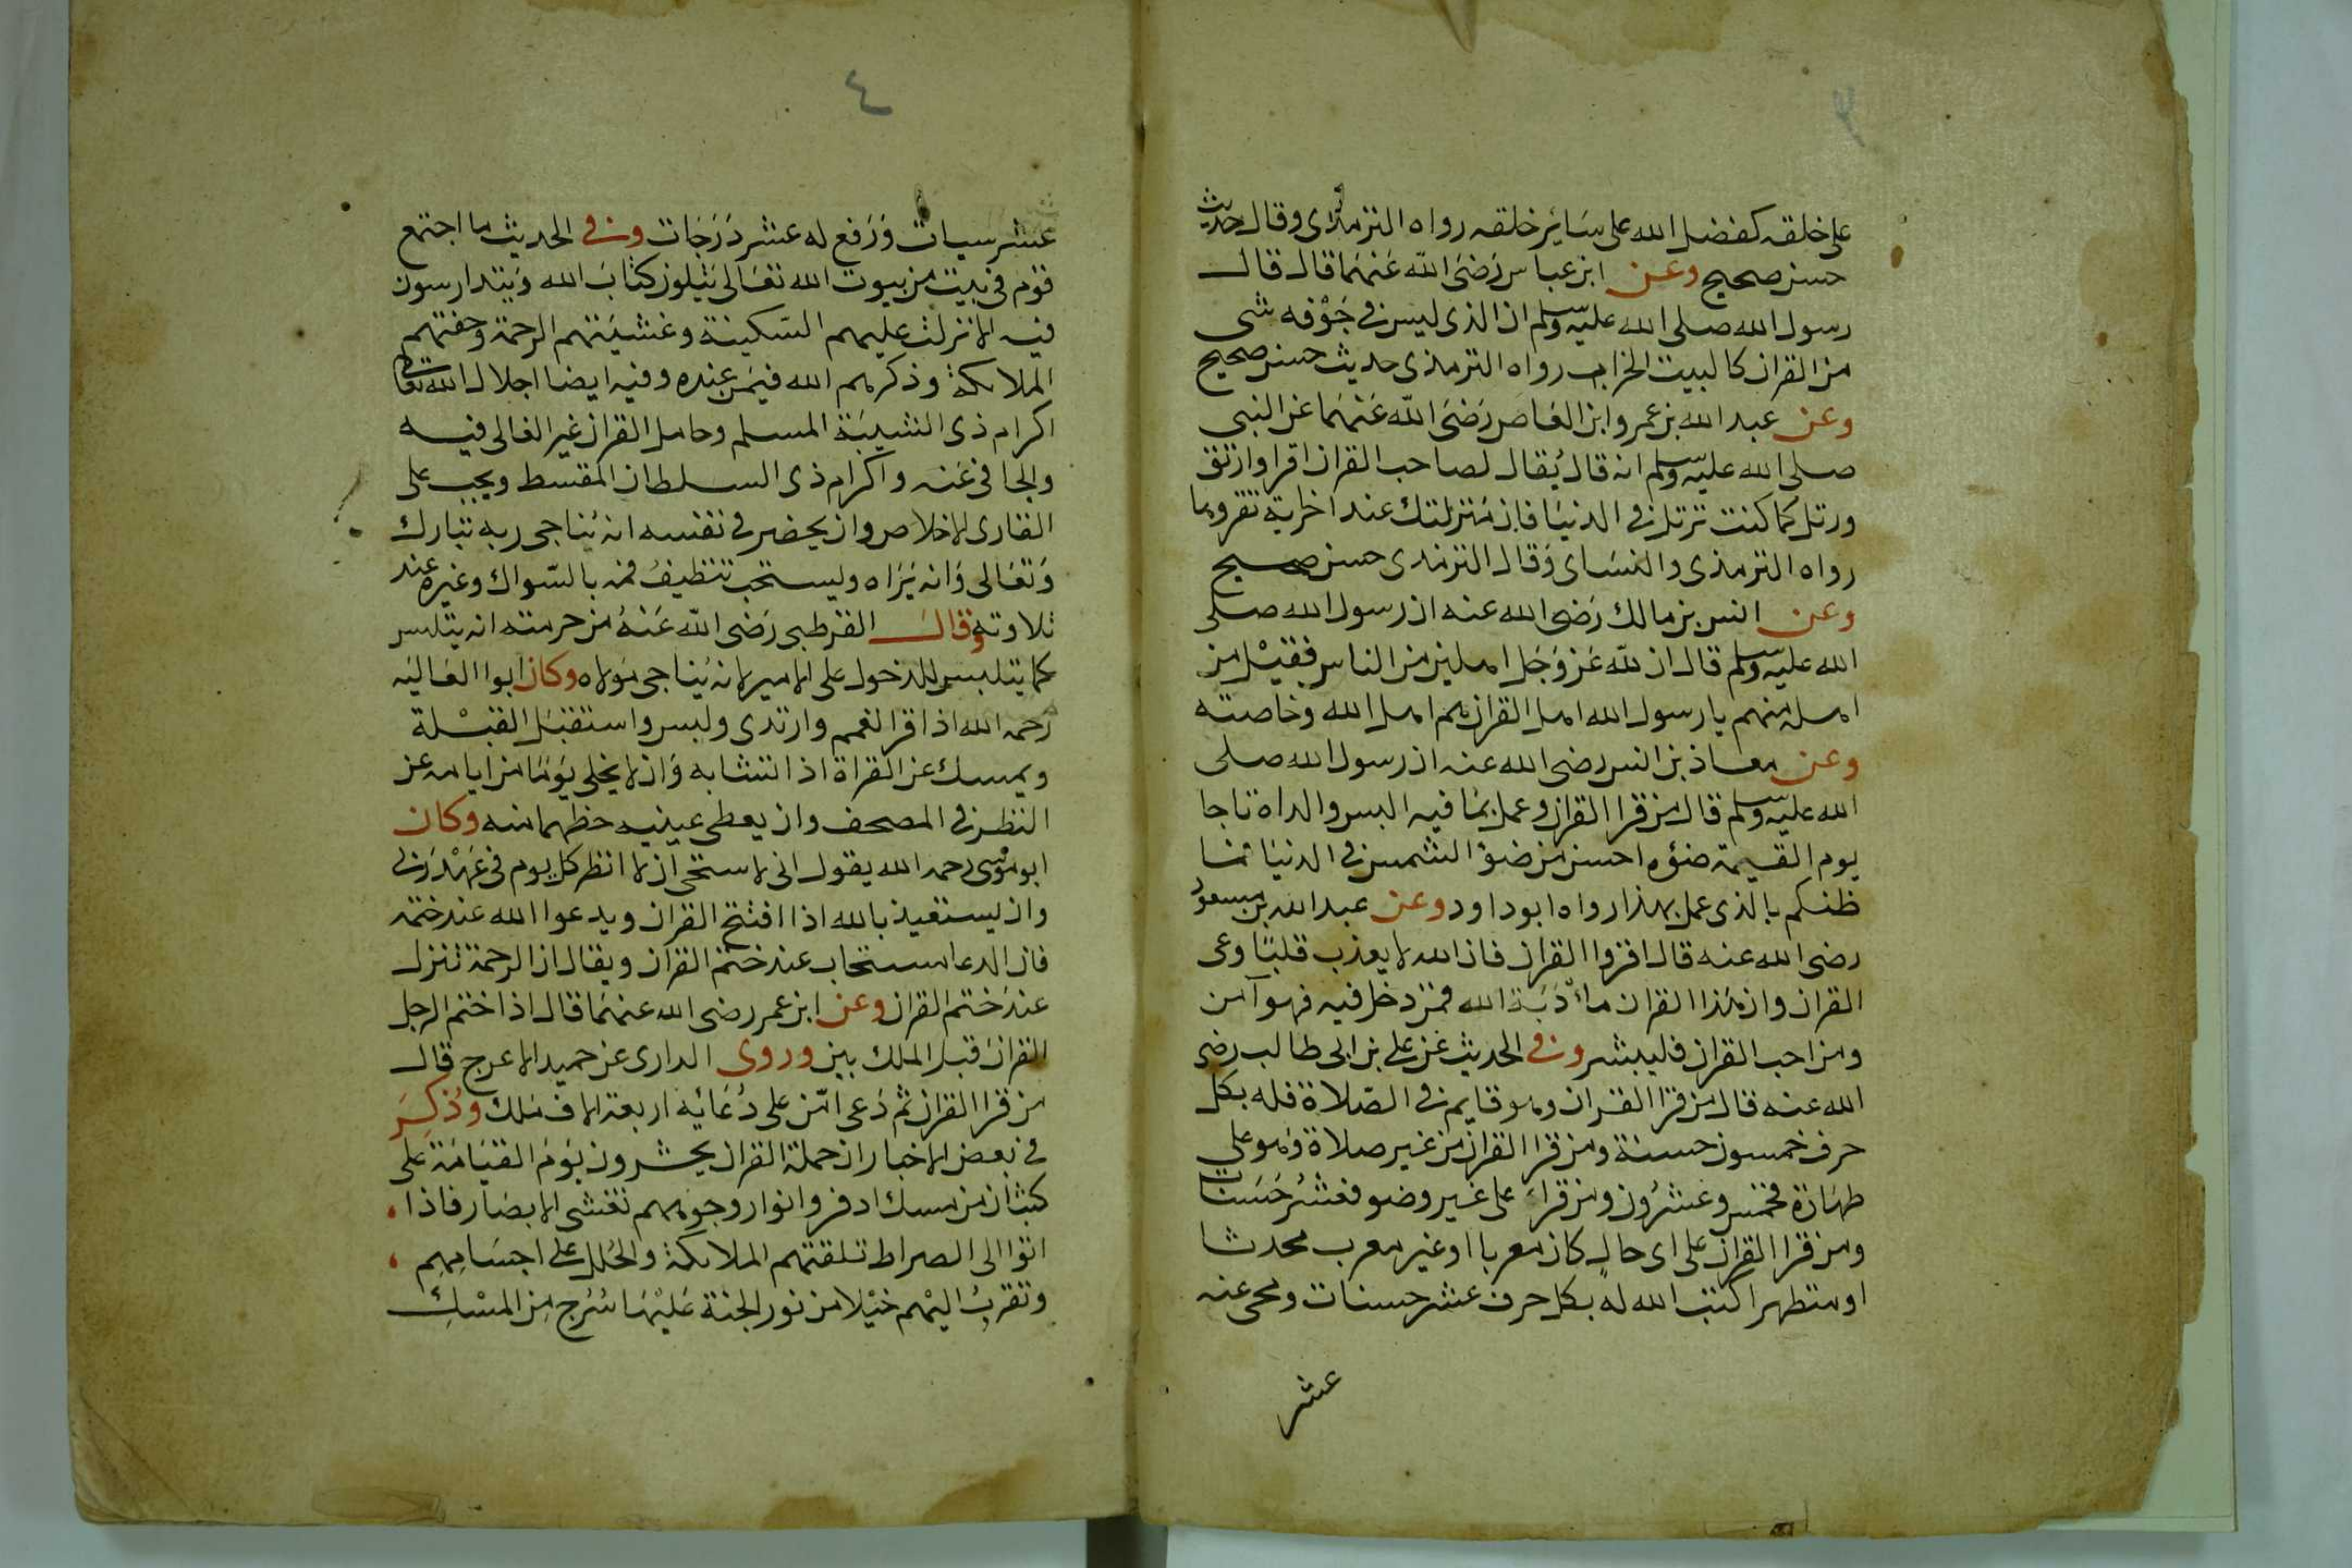 على خلقه كفضل الله على سائر خلقه رواه الترمذى وقال حديث
حسن صحيح وعن ابن عباس رَضىَ الله عَنهمَا قال قال
رسول الله صلى الله عليه وسلم ان الذى ليس فى جَوْفه شى
من القران كالبيت الخراب رواه الترمذى حديث حسن صحيح
وعن عبد الله بن عمرو ابن العَاص رَضىَ الله عَنهمَا عن النبى
صلى الله عليه وسلم انه قال يُقال لصاحب القران اقرا وارتق
ورتل كما كنت ترتل فى الدنيَا فان مَنزلتك عند اخر اية تقروبها
رواه الترمذى والنسَاى وَقال الترمذى حسن صحيح
وعن انس بن مالك رَضى الله عنه ان رسول الله صلى
الله عليه وسلم قال ان لله عَز وَجَل اهلين من الناس فقيْل من
اهله منهم يا رسول الله اهل القران هم اهل الله وخاصته
وعن معاذ بن انس رضى الله عنه ان رسول الله صلى
الله عليه وسلم قال من قرا القران وعمل بمَا فيه البس والداه تاجا
يوم القيمة ضؤه احسن من ضؤ الشمس فى الدنيَا فما
ظنكم بالذى عمل بهذا رواه ابو داود وعن عبد الله بن مسعود
رضى الله عنه قال اقروا القران فان الله لا يعذب قلبًا وعى
القران وان هَذا القران مأدَبَة الله فمن دخل فيه فهو آمن
ومن احب القران فليبشر وفى الحديث عن على بن ابى طالب رضى
الله عنه قال من قرا القران وهو قايم فى الصّلاة فله بكل
حرف خمسون حسنة ومن قرا القران من غير صلاة وَهو على
طهَارة فخمس وعشرُون ومن قراءَ على غير وضو فعشرُ حَسَنات
ومن قرا القران على اى حالٍ كان معربا او غير معرب محدثا
او متطهرا كتب الله له بكل حرف عشر حسنات ومحى عنه
عشر
٤
عشر سيات وَرَفع له عشر دَرَجَات وفى الحديث ما اجتمع
قوم فى بيت من بيوت الله تعَالى يَتلون كتابَ الله وَيتدارسون
فيه الا نزلت عليهم السّكينة وغشيَتهم الرحمَة وحفتهم
الملايكة وذكرهم الله فيمَن عنده وفيه ايضا اجلال الله تعالى
اكرام ذى الشيبَة المسلم وحامل القران غير الغالى فيه
والجافى عَنه واكرام ذى السلطان المقسط ويجب على
القارى الاخلاص وان يحضر فى نفسه انه يُناجى ربه تبارك
وَتعَالى وَانه يَرَاه ويستحب تنظيفُ فمه بالسّواك وغيره عند
تلاوته وقالَ القرطبى رَضى الله عَنهُ من حرمته ان يتلبس
كما يتلبس للدخول على الامير لانه يُناجى مَولاه وكان ابوا العَاليَه
رحمه الله اذا قرا اغتمم وارتدى ولبس واستقبَل القبْلة
ويمسك عن القراة اذا تتشابه وَان لا يخلى يَومًا من ايامه عن
النظر فى المصحف وان يعطى عينيه حظهما منه وكان
ابو موسى رحمه الله يقول انى لاستحى ان لا انظر كل يوم فى عَهْد رَبى
وان يستعيذ بالله اذا افتتح القران ويدعوا الله عند ختمه
فان الدعا يستجاب عند ختم القران ويقال ان الرحمة تنزل
عندَ ختم القران وعن ابن عمر رضى الله عنهمَا قال اذا ختم الرجل
القرانَ قبل الملك بين وروى الدارى عن حميد الاعرج قال
من قرا القران ثم دَعى امّن على دُعَائه اربعة الاف مَلك وذُكِرَ
فى بَعض الاخبار ان حملة القران يحشرون يَوم القيَامَة على
كثبان من مسك ادفر وانوار وجوههم تغشى الابصَار فاذا
اتوا الى الصراط تلقتهم الملايكة والحُلل على اجسَامِهِم
وتقربُ اليْهم خيْلا من نور الجنة عَليْهَا سُرج مِن المسْكِ